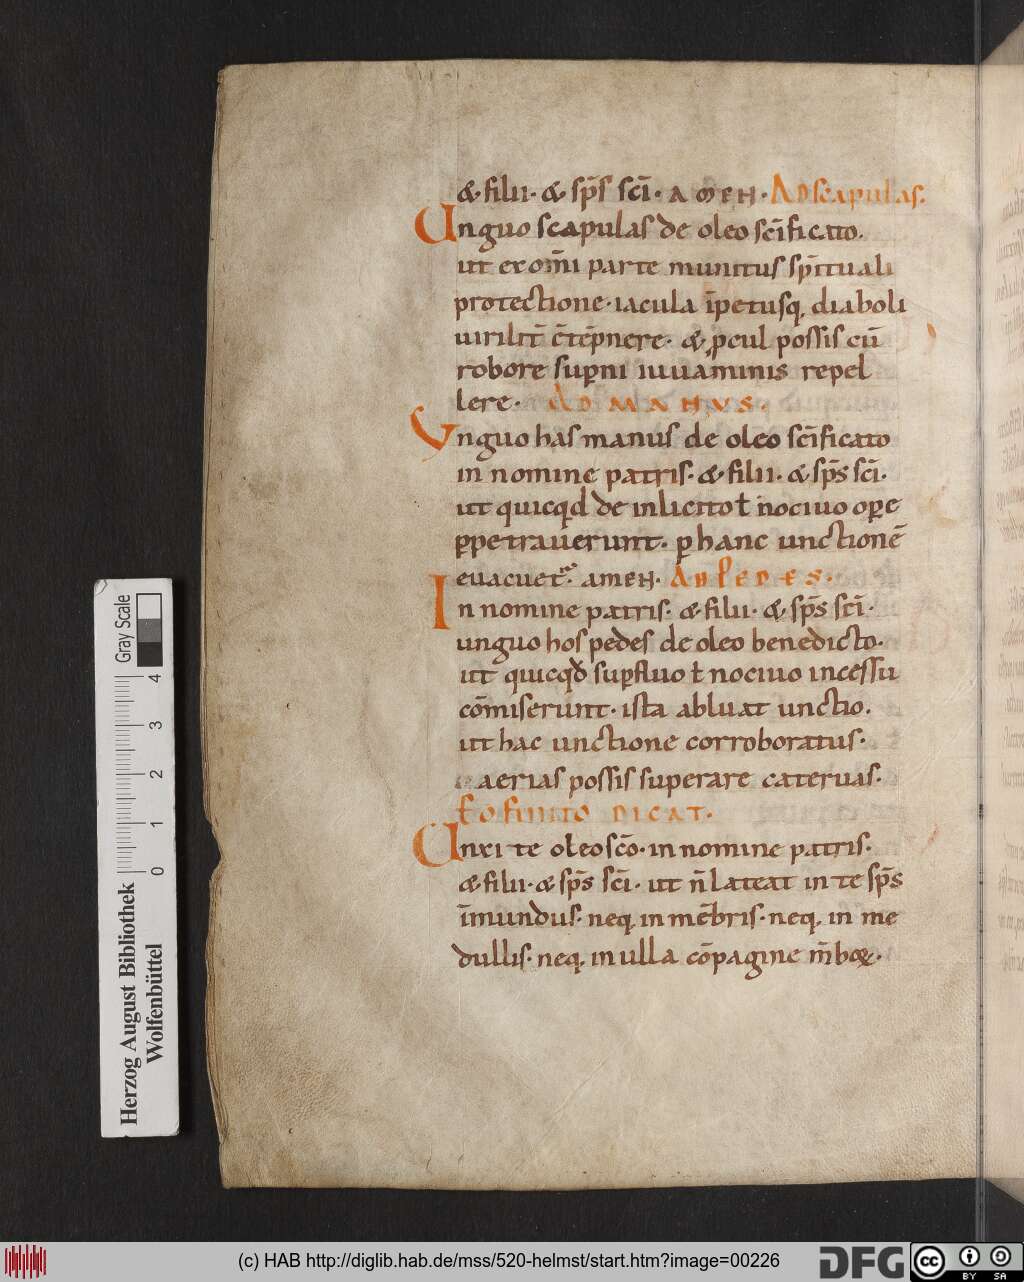 & filii· & sp̄s sc̄i· AMEN· AD scapulas.
Unguo scapulas de oleo sc̄ificato.
ut ex om̄i parte munitus sp̄ituali
protectione· iacula īpetusq, diaboli
uirilit̄ c̄tēpnere· & ꝓcul possis cū
robore suꝑni iuuaminis repel
lere· AD MANUS·
Unguo has manus de oleo sc̄ificato
in nomine patris· & filii· & sp̄s sc̄i·
ut quicq̇d de inlicito ł nociuo oꝑe
ꝑpetrauerunt· ꝑ hanc unctionē
euacuet᷑· amen· AD PEDES·
In nomine patris· & filii· & sp̄s sc̄i·
unguo hos pedes de oleo benedicto·
ut quicqđ suꝑfluo ł nociuo incessu
cōmiserunt· ista abluat unctio.
ut hac unctione corroboratus·
aerias possis superare cateruas·
Eo finito DICAT·
Unxi te oleo sc̄o· in nomine patris·
& filii· & sp̄s sc̄i· ut n̄ lateat in te sp̄s
īmundus· neq, in mēbris· neq, in me
dullis· neq, in ulla cōpagine m̄broꝝ·
Gray Scale
0 1 2 3 4
Herzog August Bibliothek
Wolfenbüttel
(c) HAB http://diglib.hab.de/mss/520-helmst/start.htm?image=00226
DFG
cc
BY SA